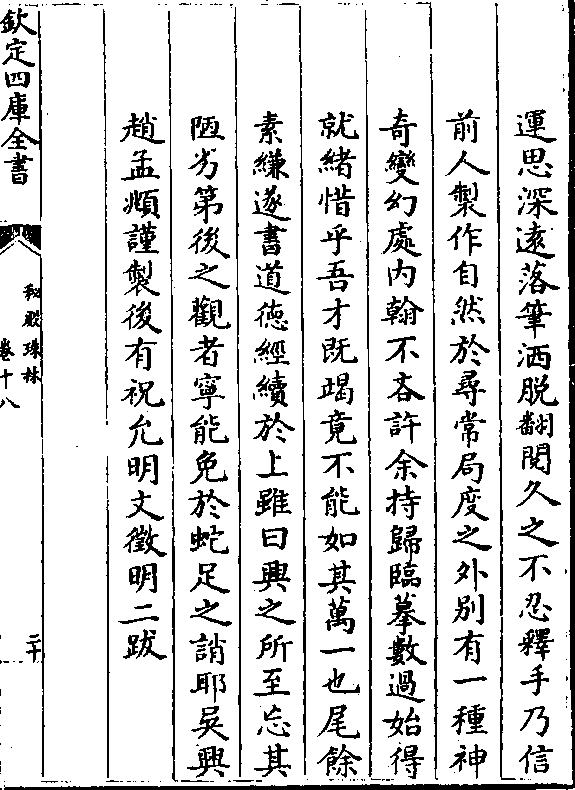 運思深遠落筆洒脱翻閱久之不忍釋手乃信
前人製作自然於尋常局度之外别有一種神
奇變幻處内翰不吝許余持歸臨摹數過始得
就緒惜乎吾才既竭竟不能如其萬一也尾餘
素縑遂書道德經續於上雖曰興之所至忘其
陋劣第後之觀者寧能免於蛇足之誚耶吳興
趙孟頫謹製後有祝允明文徵明二跋
欽定四庫全書
秘殿珠林
卷十八
二十